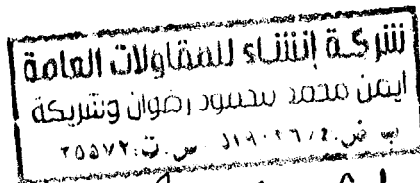 شركة إنشاء للمقاولات العامة
ايمن محمد محمود رضوان وشريكة
ب ض: س.ت: ٢٥٥٧٢